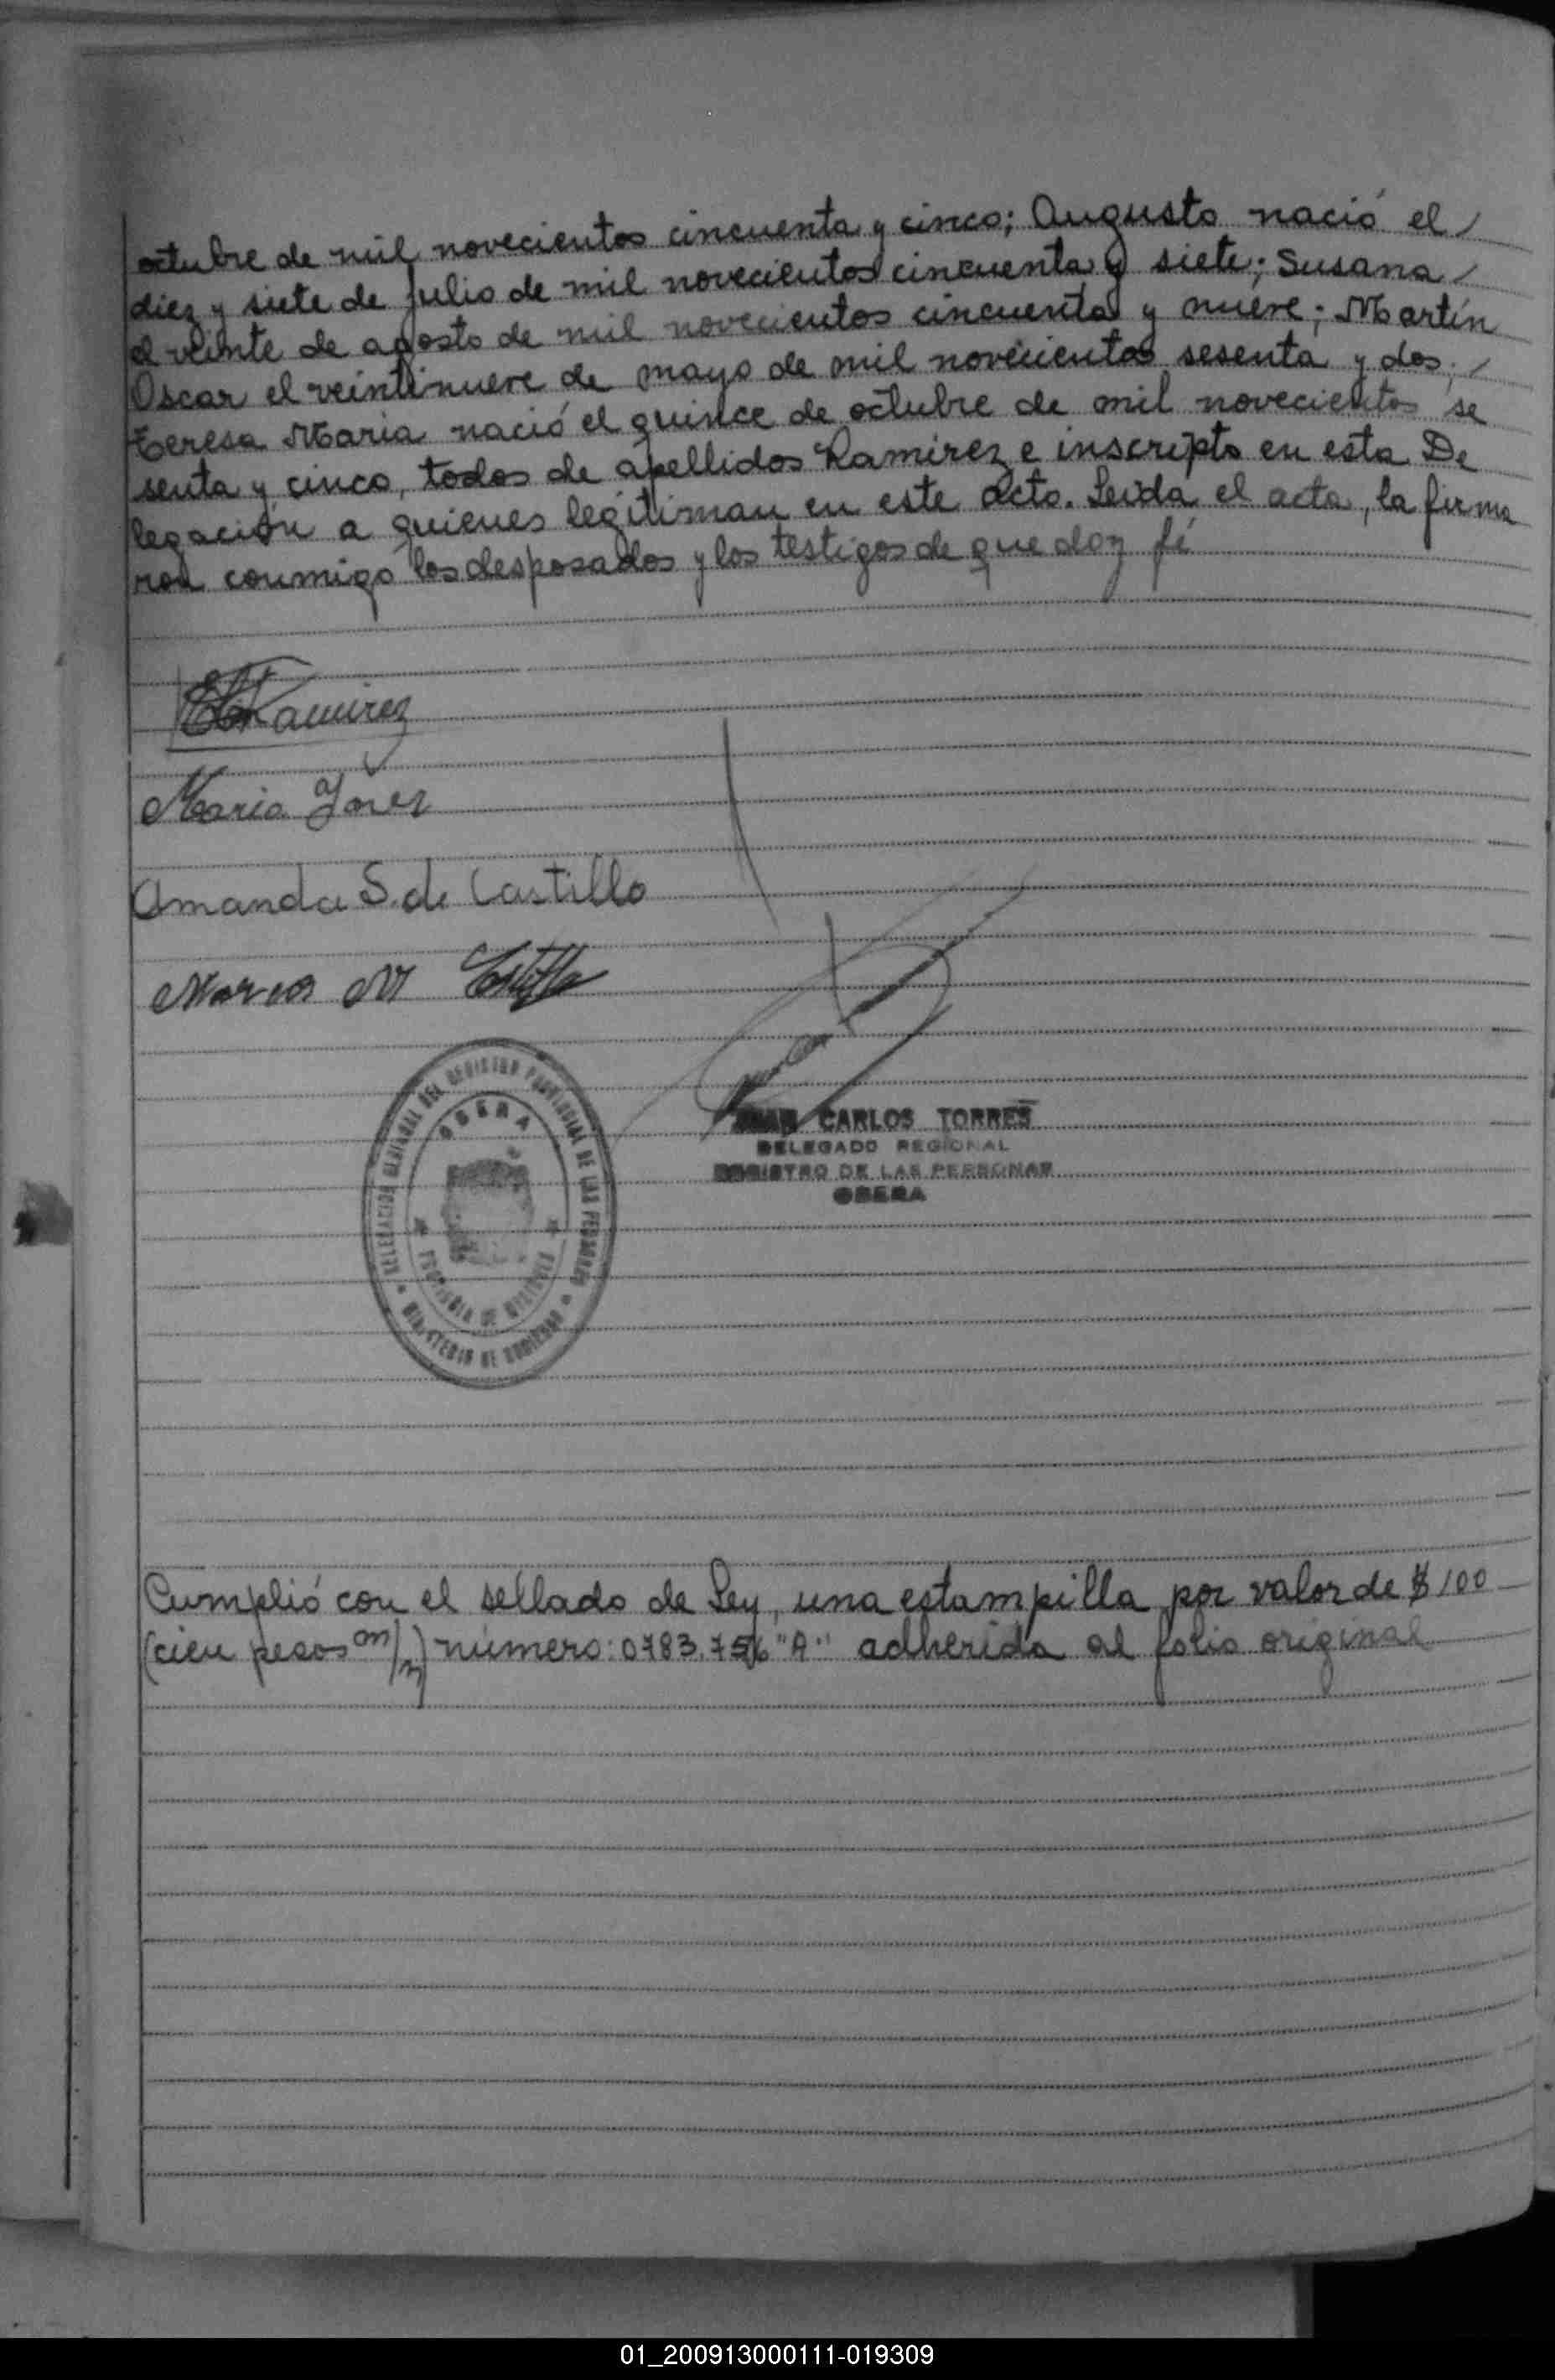 octubre de mil novecientos cincuenta y cinco; Augusto nació el /
diez y siete de julio de mil novecientos cincuenta y siete; Susana /
el veinte de agosto de mil novecientos cincuenta y nueve; Martín
Oscar el veintinueve de mayo de mil novecientos sesenta y dos; /
Teresa María nació el quince de octubre de mil novecientos se
senta y cinco, todos de apellidos Ramirez e inscripto en esta De
legación a quienes legitiman en este acto. Leida el acta, la firma
ron conmigo los desposados y los testigos de que doy fé
Ramirez
Maria
Amanda S. de Castillo
Marcos M
DELEGACION REGIONAL DEL REGISTRO PROVINCIAL DE LAS PERSONAS
OBERA
PROVINCIA DE MISIONES
MINISTERIO DE GOBIERNO
JUAN CARLOS TORRES
DELEGADO REGIONAL
REGISTRO DE LAS PERSONAS
OBERA
Cumplió con el sellado de Ley, una estampilla por valor de $ 100
(cien pesos m/n) número: 0783.756 "A" adherida al folio original
01_200913000111-019309